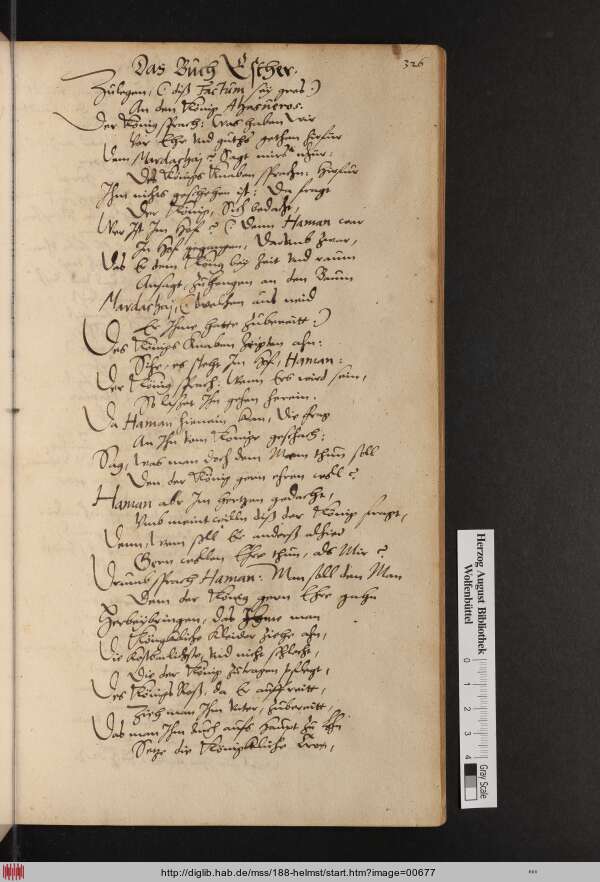 326
Das Buch Esther.
Zulegen, (diß Factum sey gros:)
An den König Ahasueros.
Der König sprach: Was haben wir
vor Ehr und guths gethan hirfur
Dem Mardachaj? Sagt mirs nhur:
Des Königs Knaben sprachen: hirfur
Ihm nichts geschehen ist: Da fragt
Der König, Sich bedacht,
Wer Ist Im Hof? (Denn Haman war
In Hof gegangen, Darumb zwar,
Das Er dem König bey Zeit und raum
Ansagt, Zuhengen an den Baum
Mardachaj, Welchen aus neid
Er Ihme hatte Zubereitt:)
Des Königs Knaben Zeigten ahn:
Sihe, es steht Im Hof, Haman:
Der König sprach: Wenn Ers wird sein,
So lasset Ihn gehen herein.
Da Haman hienein kam, Die frag
An Ihn vom Könige geschach:
Sag, Was man doch dem Mann thun soll
Den der König gern ehren woll?
Haman abr Im hertzen gedacht,
Und meint weiln diß der König fragt,
Denn, Wem soll Er anderß alhier
Gern wollen Ehre thun, als Mir?
Drumb sprach Haman: Man soll dem Man
Dem der König gern Ehre
Herbeÿbringen, das Ihme man
Königkliche Kleider Ziehe ahn,
Die Köstenlichste, und nicht schlecht,
Die der König Zutragen pflegt,
Des Königs Roß, da Er auff reitt,
Zieh man Ihm Zubereitt,
Das man Ihm auch aufs Haupt
Setze die Königkliche Kron,
Herzog August Bibliothek
Wolfenbüttel
0 1 2 3 4
Gray Scale
http://diglib.hab.de/mss/188-helmst/start.htm?image=00677